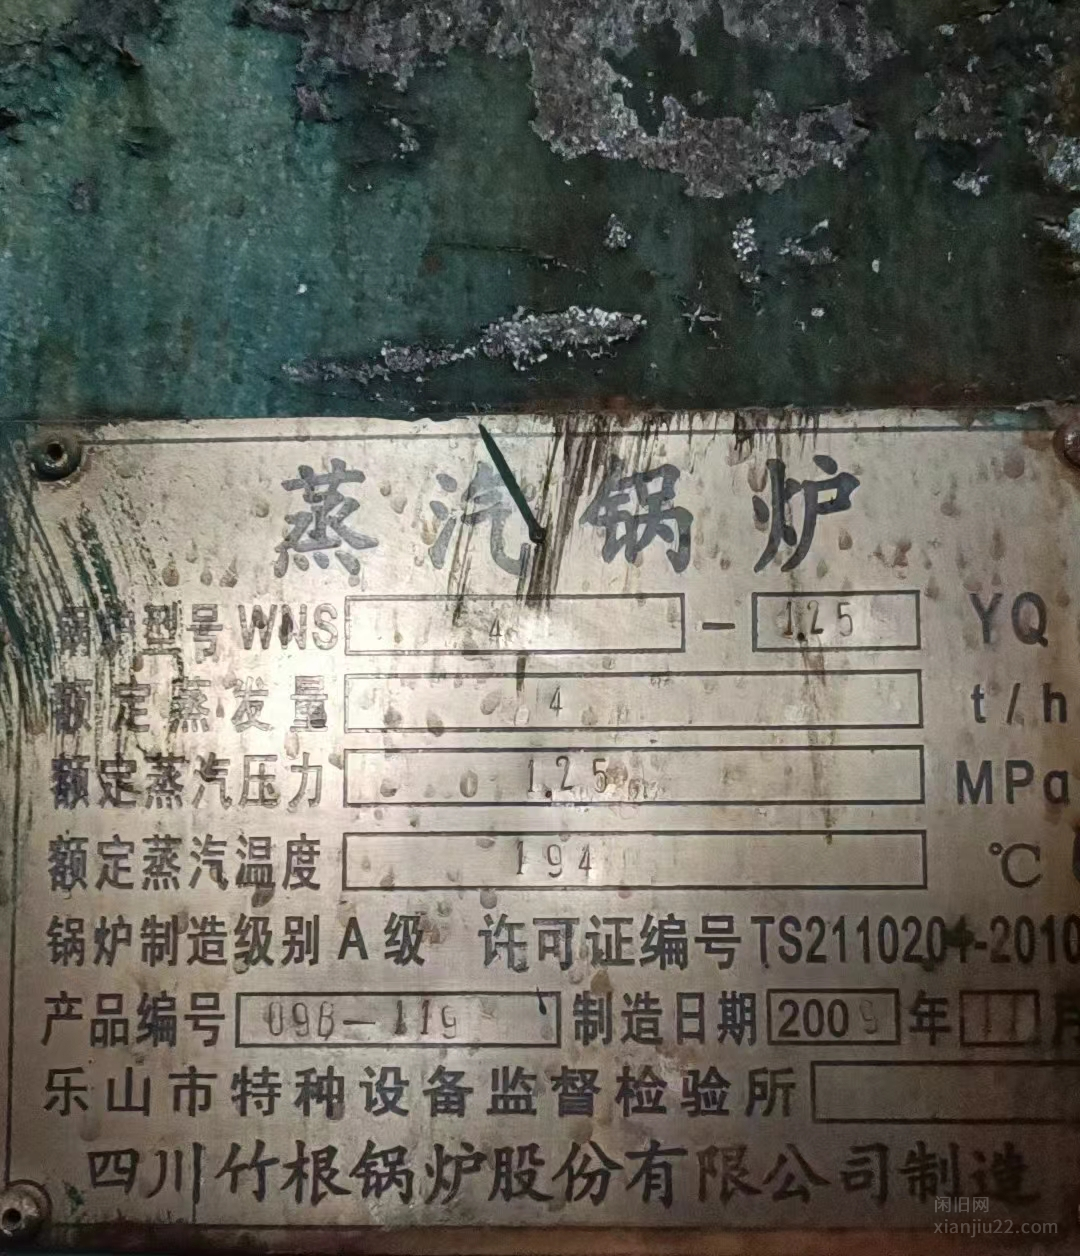 蒸汽锅炉
锅炉型号WNS 4 - 1.25 YQ
额定蒸发量 4 t/h
额定蒸汽压力 1.25 MPa
额定蒸汽温度 194 ℃
锅炉制造级别 A 级 许可证编号TS2110204-2010
产品编号 09B-119 制造日期 2009 年 11 月
乐山市特种设备监督检验所
四川竹根锅炉股份有限公司制造
闲旧网
xianjiu22.com